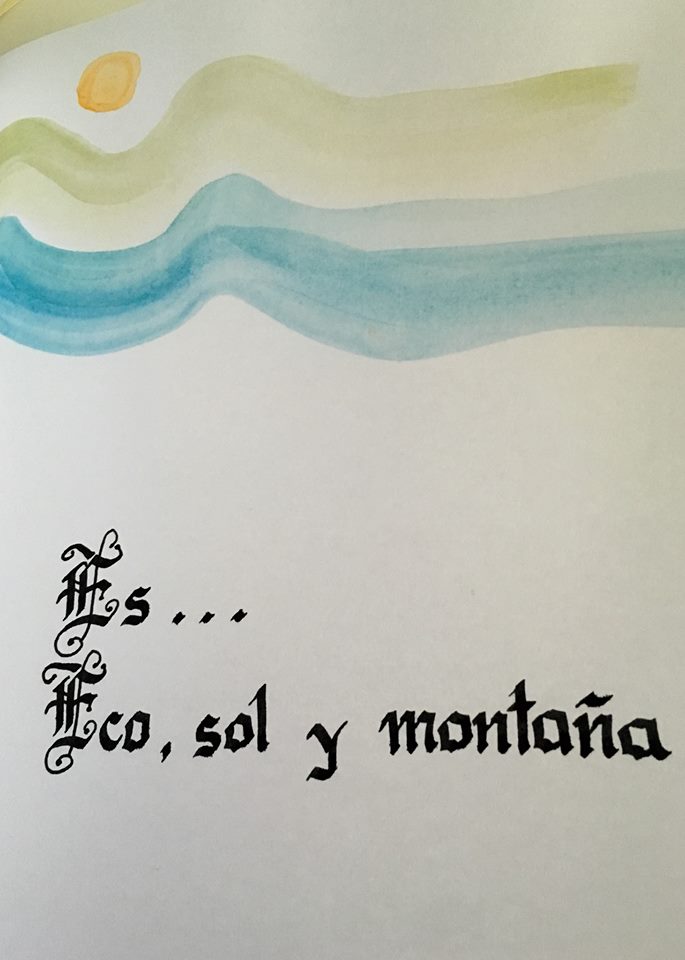 Es...
Eco, sol y montaña